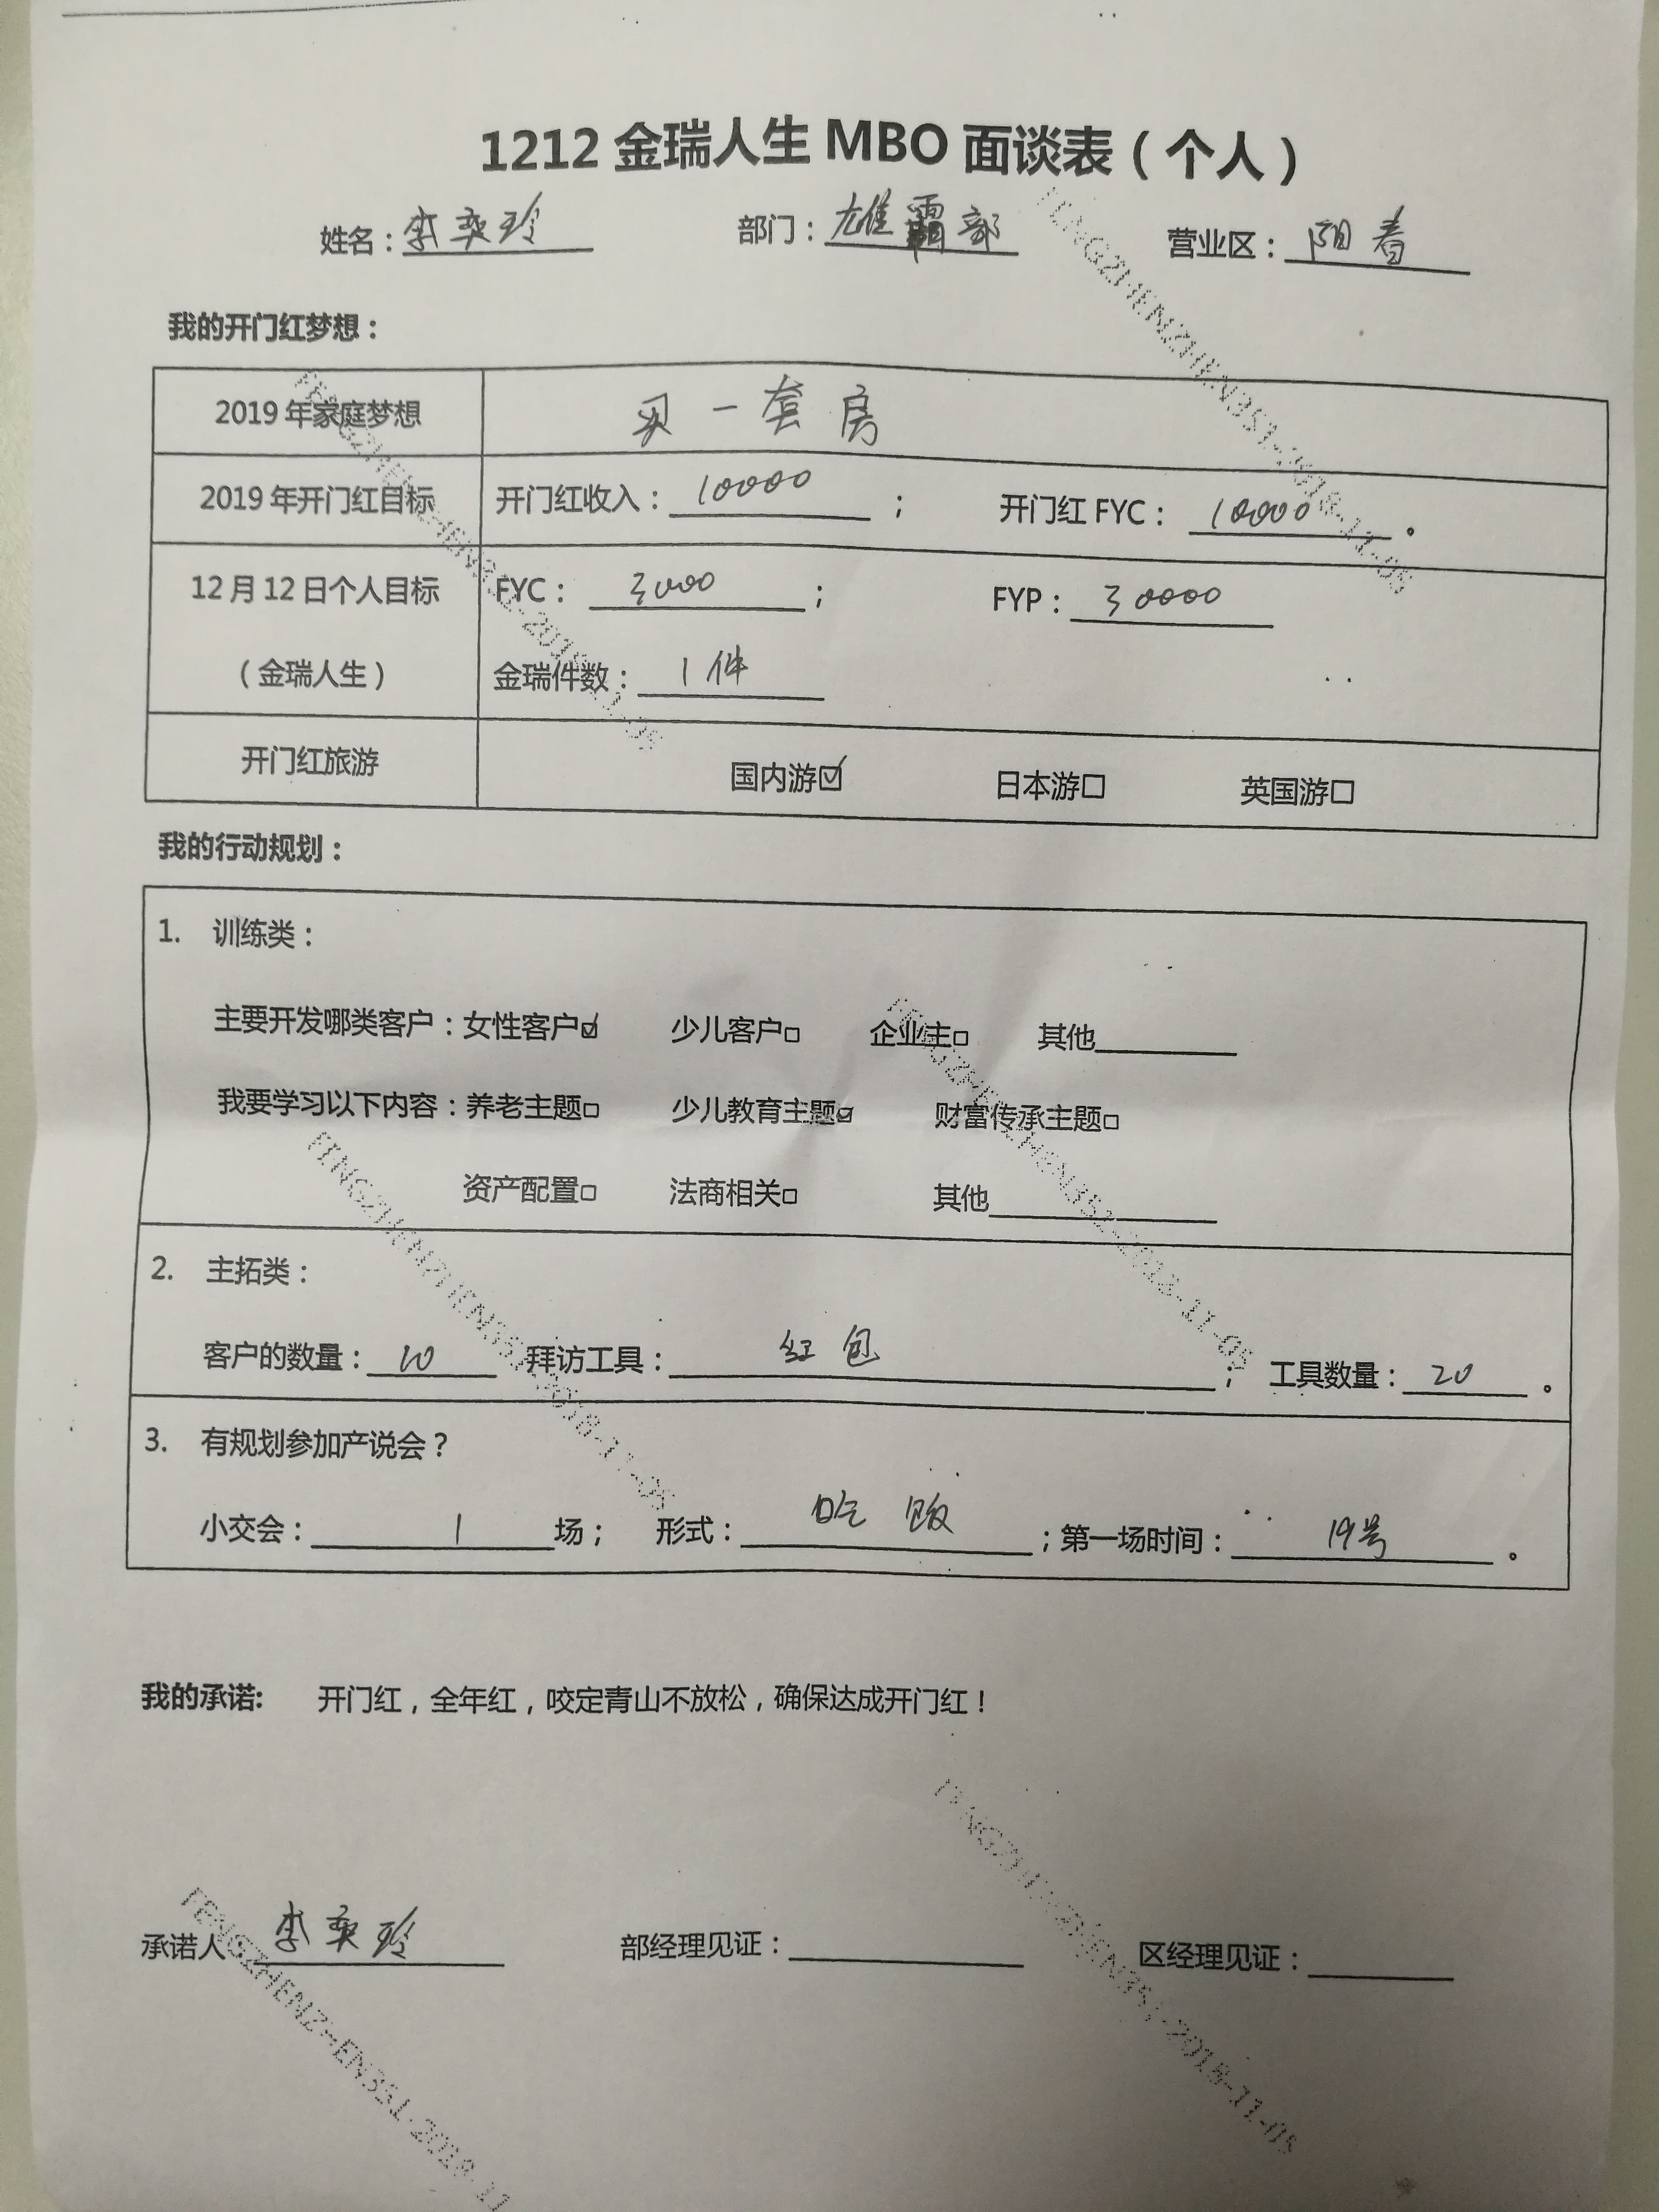 1212 金瑞人生 MBO 面谈表（个人）
姓名：李奕玲 部门：雄霸部 营业区：阳春
我的开门红梦想：
2019 年家庭梦想 买一套房
2019 年开门红目标 开门红收入：10000； 开门红 FYC：10000。
12 月 12 日个人目标 FYC：3000； FYP：30000
（金瑞人生） 金瑞件数：1件
开门红旅游 国内游☑ 日本游□ 英国游□
我的行动规划：
1. 训练类：
主要开发哪类客户：女性客户☑ 少儿客户□ 企业主□ 其他
我要学习以下内容：养老主题□ 少儿教育主题☑ 财富传承主题□
资产配置□ 法商相关□ 其他
2. 主拓类：
客户的数量：10 拜访工具：红包； 工具数量：20。
3. 有规划参加产说会？
小交会：1场； 形式：吃饭；第一场时间：19号。
我的承诺: 开门红，全年红，咬定青山不放松，确保达成开门红！
承诺人：李奕玲 部经理见证： 区经理见证：
FENGZHENZHEN351-2018-11-05
FENGZHENZHEN351-2018-11-05
FENGZHENZHEN351-2018-11-05
FENGZHENZHEN351-2018-11-05
FENGZHENZHEN351-2018-11
FENGZHENZHEN351-2018-11-05